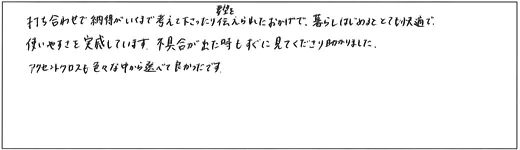 打ち合わせで納得がいくまで考えて下さったり要望を伝えられたおかげで、暮らしはじめるととても快適で、
使いやすさを実感しています。不具合が出た時もすぐに見てくださり助かりました。
アクセントクロスも色々な中から選べて良かったです。